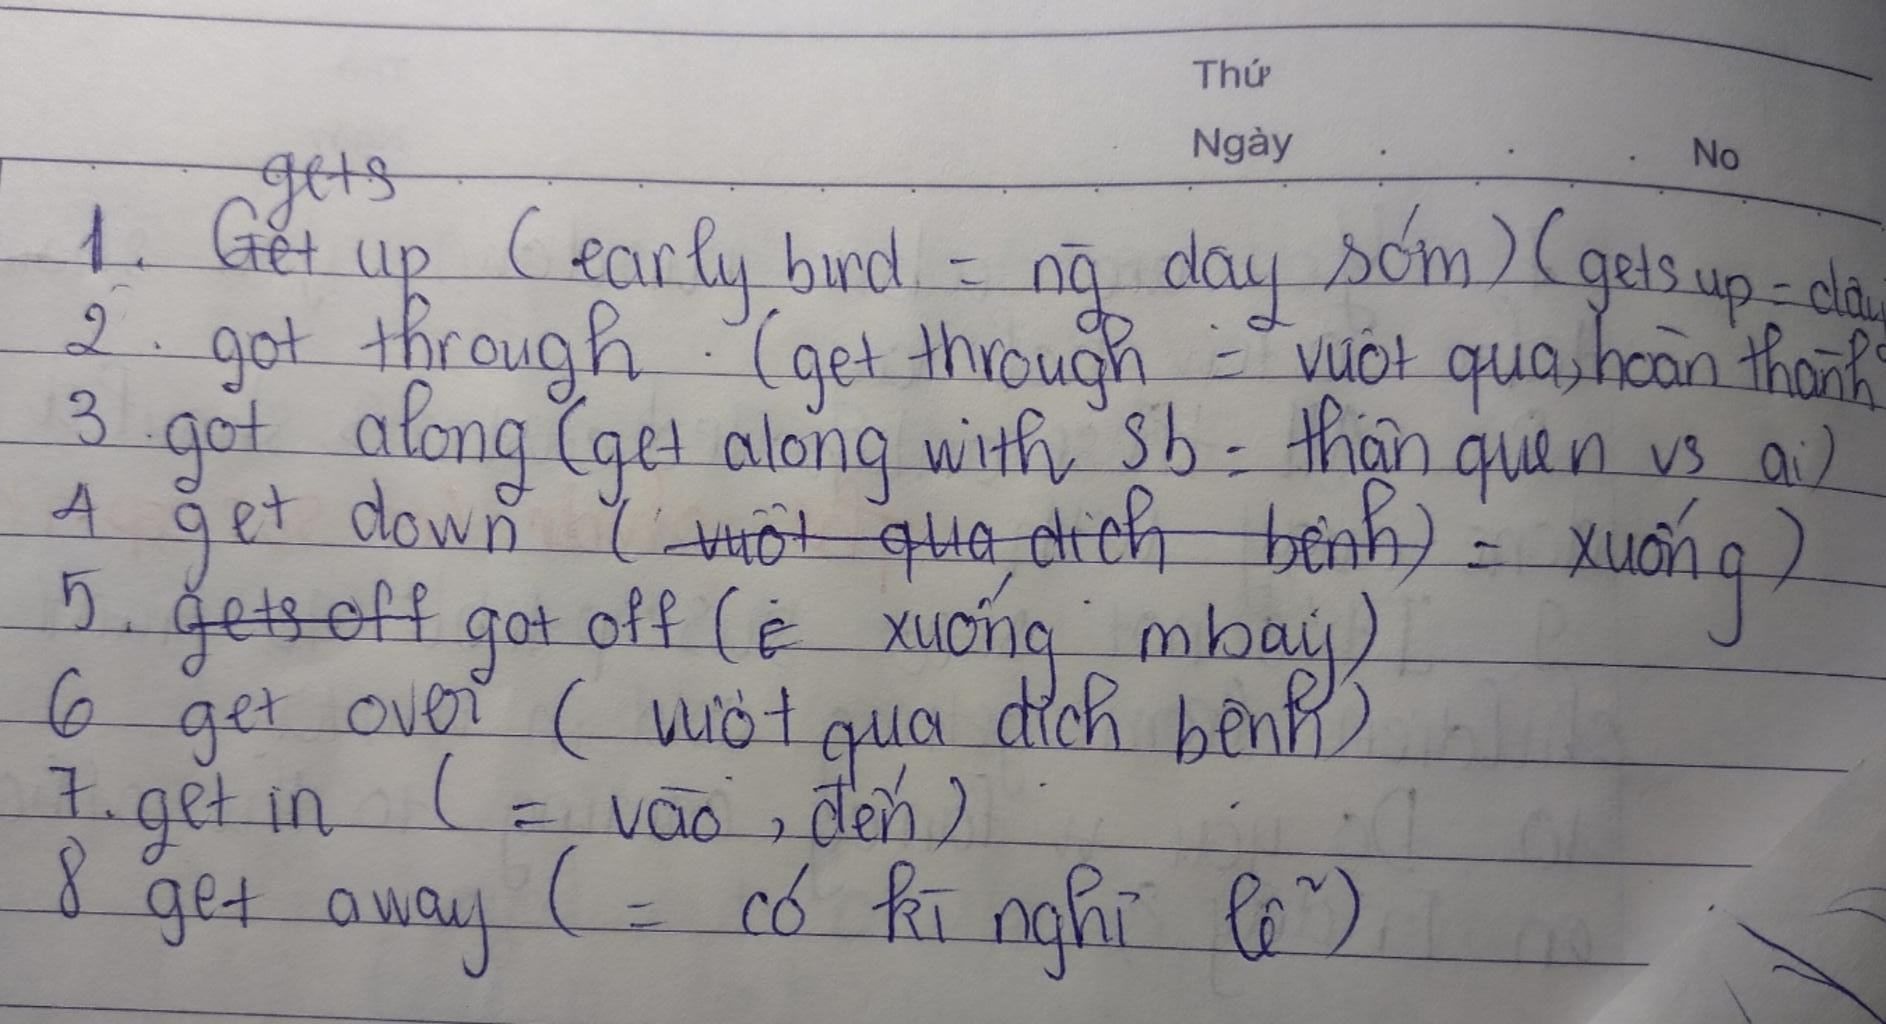 Thứ
Ngày No
gets
1. Get up (early bird = ng dậy sớm) (gets up = dậy
2. got through. (get through = vượt qua, hoàn thành
3. got along (get along with sb = thân quen vs ai)
4 get down (vượt qua dịch bệnh) = xuống)
5. gets off got off (= xuống mbay)
6 get over (vượt qua dịch bệnh)
7. get in (= vào, đến)
8 get away (= có kì nghỉ lễ)